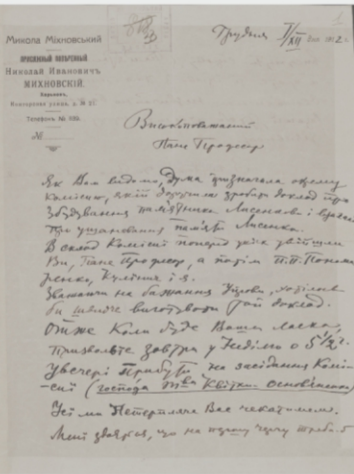 Микола Міхновський
ПРИСЯЖНЫЙ ПОВѢРЕННЫЙ
Николай Ивановичъ
МИХНОВСКІЙ.
Харьковъ,
Конторская улица, д. № 21.
Телефонъ №
№
Грудня 7/XII 1912 р.
Високоповажаний
Пане Професор
Як Вам видомо, Дума призначила окрему
комісию, якій доручила зробити доклад про
збудування памятника Лисенкові і
про ушанования памяти Лисенка.
В склад Комісії поперед усіх увійшли
Ви, Пане Професор, а потім П.П. Понома-
ренко, і я.
Зважаючи на бажання
би швидче виготувати цей доклад.
Отже коли буде Ваша ласка,
призвольте завтра у неділю о 5½ г.
увечері прибути на засідання Комі-
сії (господа т-ва Квітки-Основяненка)
Усі ми нетерпляче Вас чекатимем.
Мені здається, що на першу чергу треба б